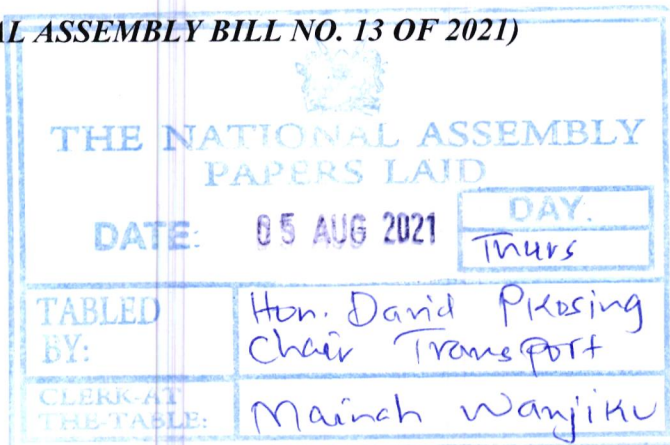 AL ASSEMBLY BILL NO. 13 OF 2021)
THE NATIONAL ASSEMBLY
PAPERS LAID
DATE: 05 AUG 2021
DAY.
Thurs
TABLED BY:
Hon. David Pkosing
Chair Transport
CLERK-AT THE-TABLE:
Mainah Wanjiku